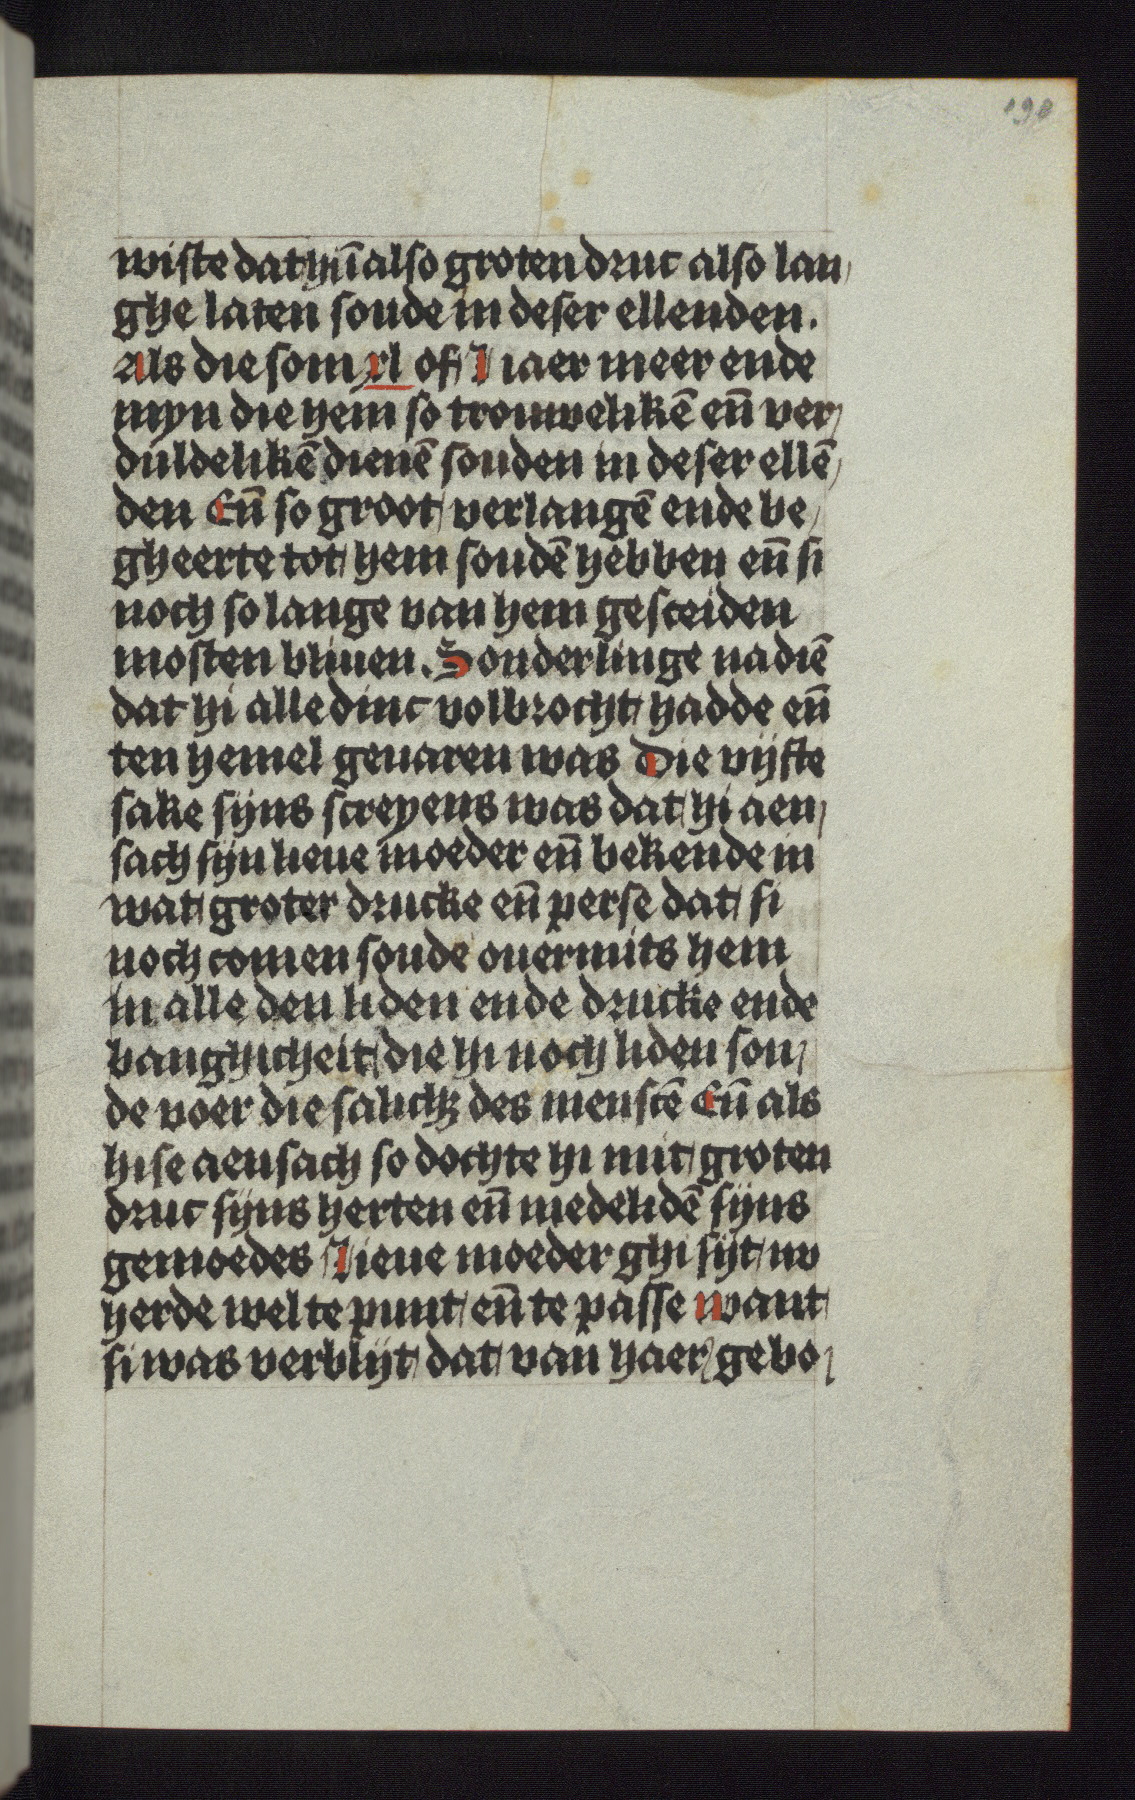 190
wiste dat hiī also groten druc also lan
ghe laten soude in deser ellenden.
Als die som xl of l iaer meer ende
myn die hem so trouwelikē en̄ ver
duldelikē dienē souden in deser ellē
den En̄ so groot verlangē ende be
gheerte tot hem soudē hebben en̄ si
noch so lange van hem gesceiden
mosten bliuen. Sonderlinge nadiē
dat hi alle dinc volbrocht hadde en̄
ten hemel geuaren was Die vijfte
sake sijns screyens was dat hi aen
sach sijn lieue moeder en̄ bekende in
wat groter drucke en̄ perse dat si
noch comen soude ouermits hem
in alle den liden ende drucke ende
banghicheit die hi noch liden sou
de voer die salichꝫ des menscē En̄ als
hise aensach so dochte hi mit groten
druc sijns herten en̄ medelidē sijns
gemoedes Lieue moeder ghi sijt nv
herde wel te punt en̄ te passe want
si was verblijt dat van haer gebo